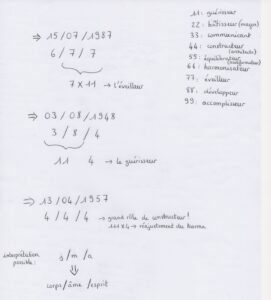 ⇒ 15/07/1987
6 / 7 / 7
7 x 11 → l'éveilleur
⇒ 03/08/1948
3 / 8 / 4
11 4 → le guérisseur
⇒ 13/04/1957
4 / 4 / 4 → grand rôle de constructeur !
111 x 4 → réajustement du karma
interprétation possible :
s / m / a
⇓
corps / âme / esprit
11 : guérisseur
22 : bâtisseur (maçon)
33 : communicant
44 : constructeur
(architecte)
55 : équilibrateur
66 : harmonisateur
77 : éveilleur
88 : développeur
99 : accomplisseur